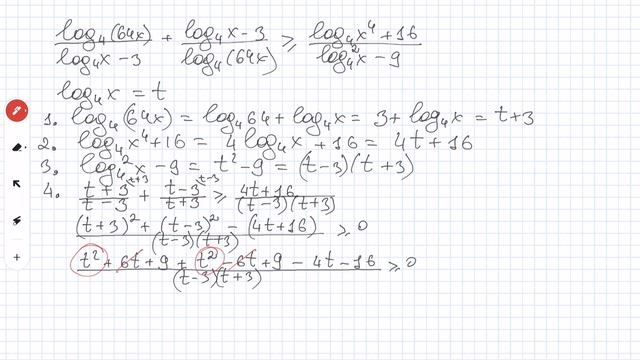 log₄(64x)/(log₄x - 3) + (log₄x - 3)/log₄(64x) ⩾ (log₄x⁴ + 16)/(log₄²x - 9)
log₄x = t
1. log₄(64x) = log₄64 + log₄x = 3 + log₄x = t + 3
2. log₄x⁴ + 16 = 4 log₄x + 16 = 4t + 16
3. log₄²x - 9 = t² - 9 = (t - 3)(t + 3)
4. (t + 3)/(t - 3) ^(\t+3) + (t - 3)/(t + 3) ^(\t-3) ⩾ (4t + 16)/((t - 3)(t + 3))
((t + 3)² + (t - 3)² - (4t + 16))/((t - 3)(t + 3)) ⩾ 0
(t² + 6t + 9 + t² - 6t + 9 - 4t - 16)/((t - 3)(t + 3)) ⩾ 0